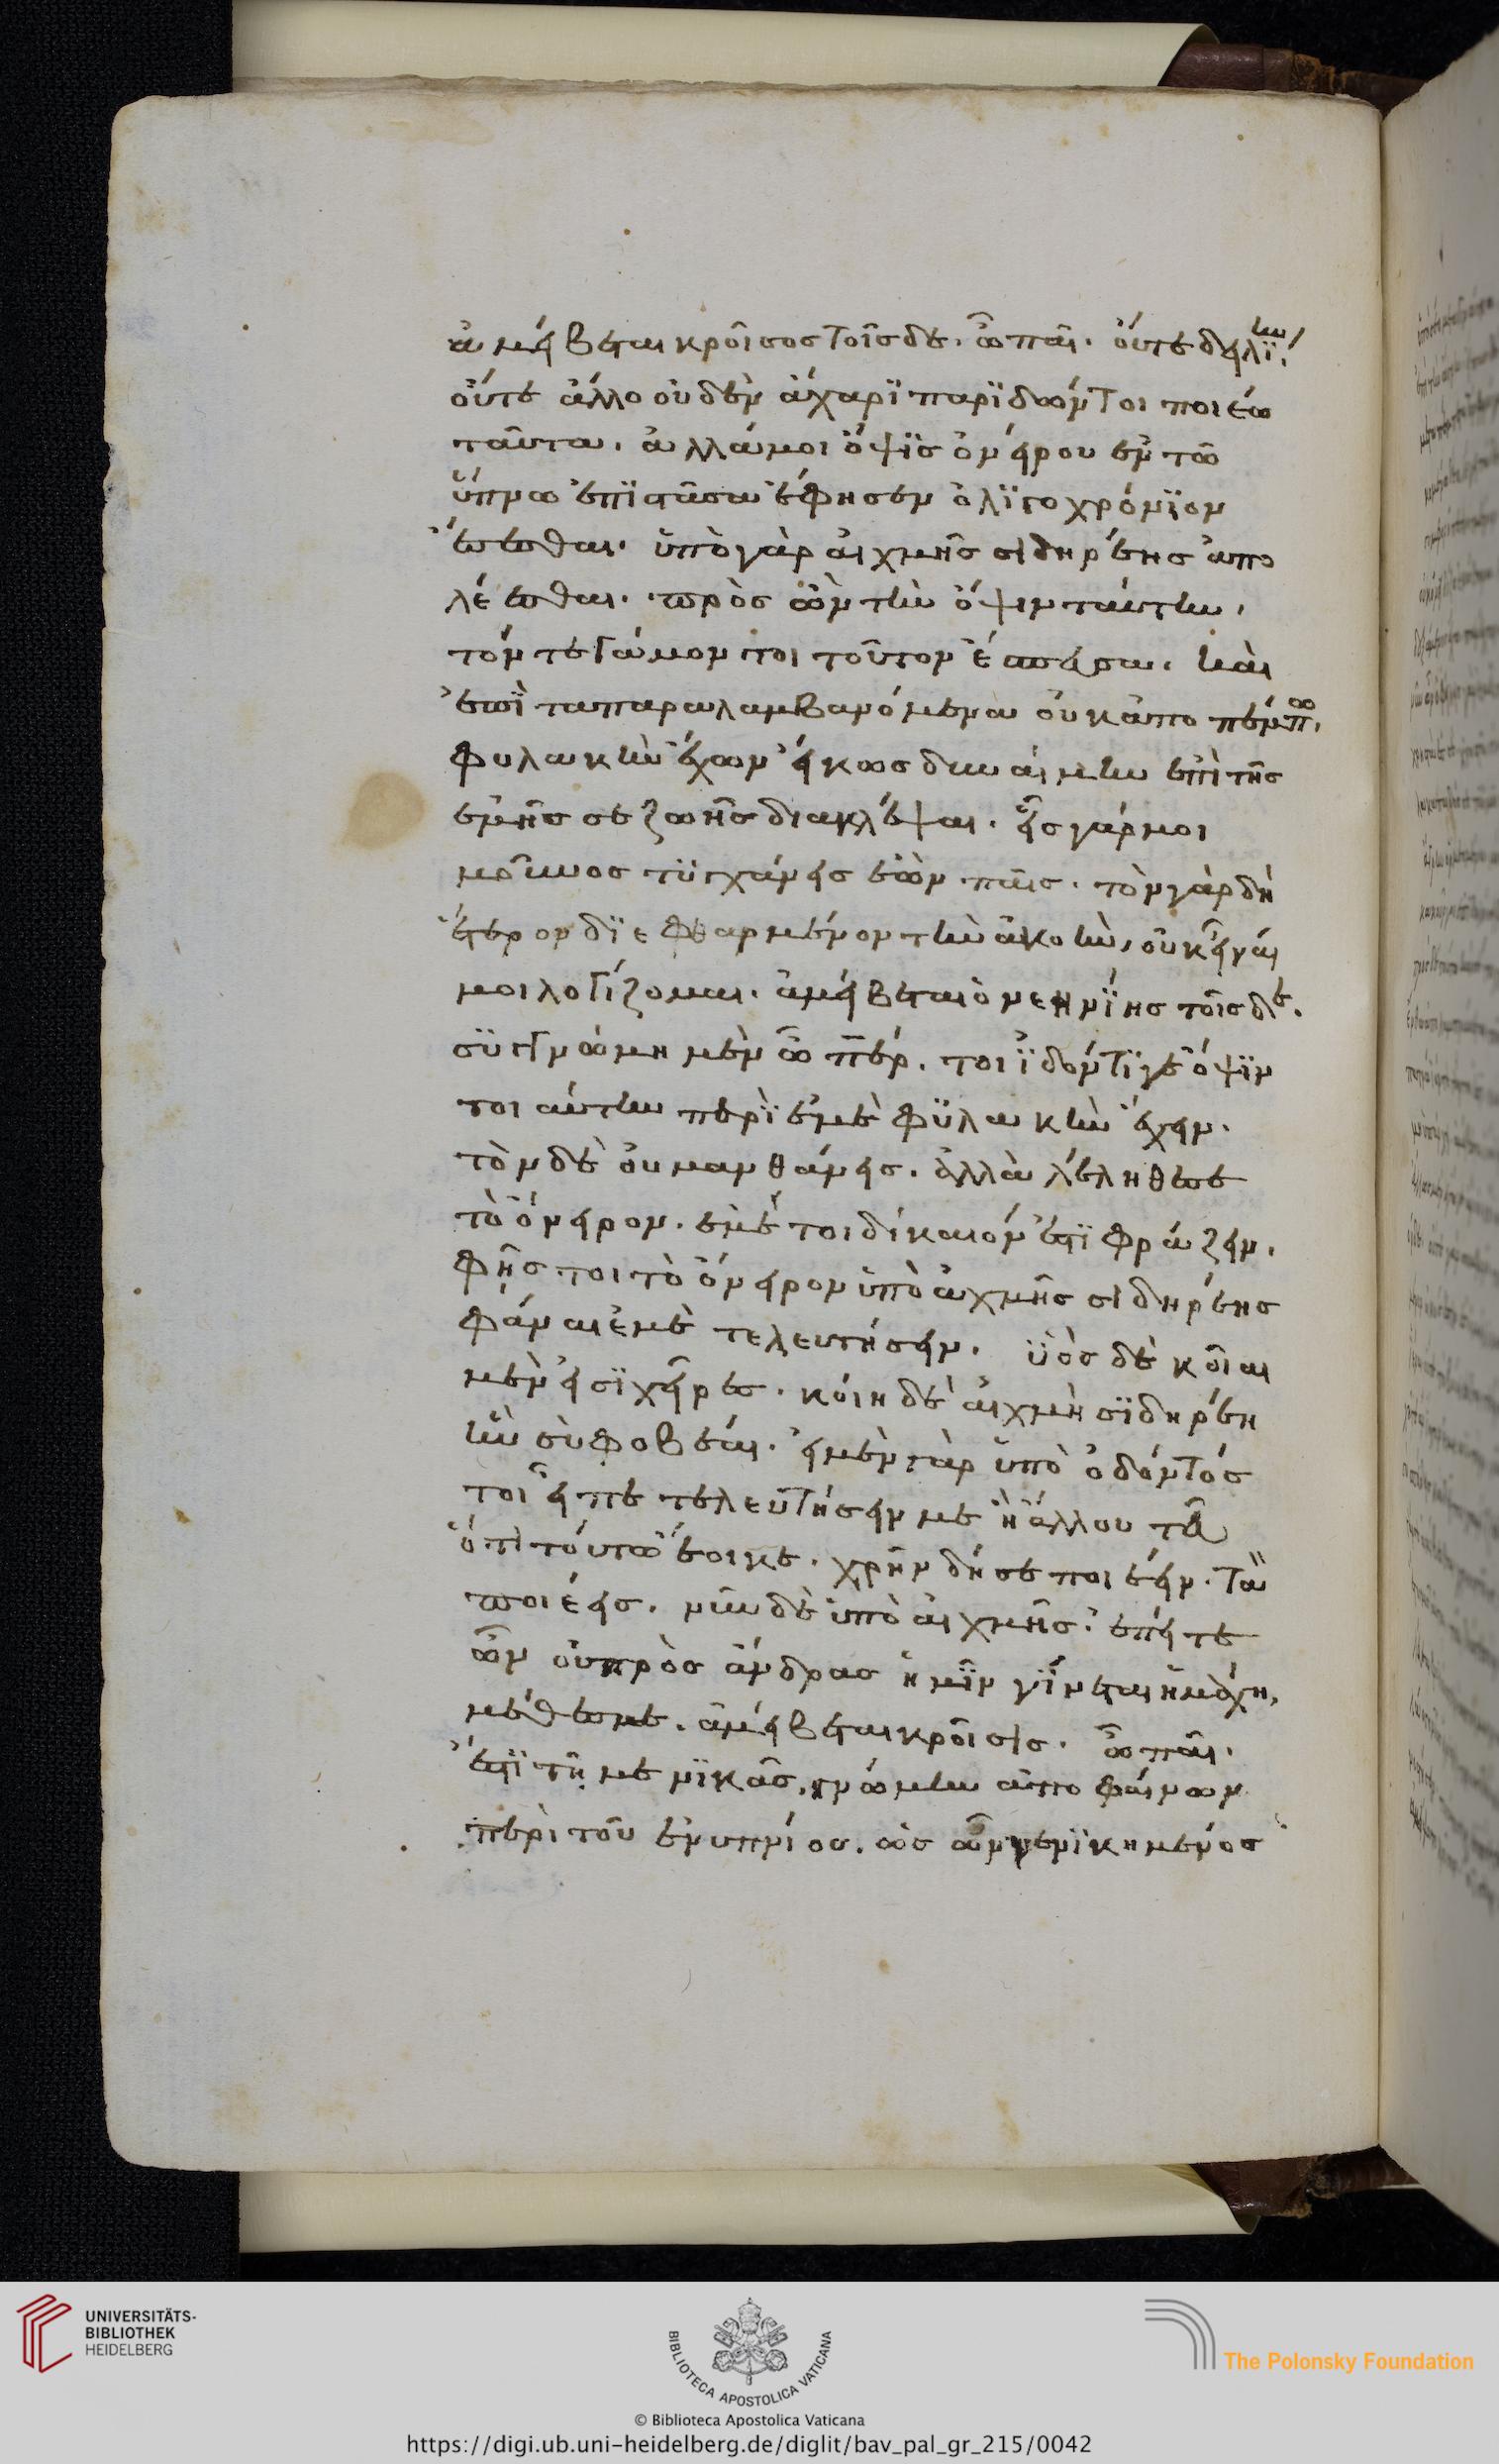 ἀμείβεται κροῖσος τοῖσδε. ὦ παῖ. οὔτε δειλίην,
οὔτε ἄλλο οὐδὲν ἄχαρι παριδών τοι ποιέω
ταῦτα. ἀλλά μοι ὄψις ὀνείρου ἐν τῶ
ὕπνω ἐπιστᾶσα ἔφησεν ὀλιγοχρόνιον
ἔσεσθαι. ὑπὸ γὰρ αἰχμῆς σιδηρέης ἀπο
λέεσθαι. πρὸς ὦν τὴν ὄψιν ταύτην,
τόν τε γάμον τοι τοῦτον ἔσπευσα. καὶ
ἐπὶ τὰ παραλαμβανόμενα οὐκ ἀποπέμπω,
φυλακὴν ἔχων εἴκως δυναίμην ἐπὶ τῆς
ἐμῆς σε ζωῆς διακλέψαι. εἷς γάρ μοι
μοῦνος τυγχάνεις ἐὼν παῖς. τὸν γὰρ δὴ
ἕτερον διεφθαρμένον τὴν ἀκοὴν, οὐκ εἶναί
μοι λογίζομαι. ἀμείβεται ὁ νεηνίης τοῖσδε.
συγγνώμη μὲν ὦ πέρ. τοι ἰδόντι γε ὄψιν
τοιαύτην περὶ ἐμὲ φυλακὴν ἔχειν.
τὸν δὲ οὐ μανθάνεις. ἀλλὰ λέληθέσε
τὸ ὄνειρον. ἐμέ τοι δίκαιόν ἐστι φράζειν.
φῄς τοι τὸ ὄνειρον ὑπὸ αἰχμῆς σιδηρέης
φάναι ἐμὲ τελευτήσειν. ὑὸς δὲ κοῖαι
μὲν εἰσὶ χεῖρες. κοίη δὲ αἰχμὴ σιδηρέη
τὴν σὺ φοβέαι. εἰ μὲν γὰρ ὑπὸ ὀδόντός
τοι εἶπε τελευτήσειν με ἢ ἄλλου τευ
ὅτι τούτω ἔοικε. χρῆν δή σε ποιέειν. τὰ
ποιέεις. νῦν δὲ ὑπὸ αἰχμῆς. ἐπεί τε
ὦν οὐ πρὸς ἄνδρας ἡμῖν γίνεται ἡ μάχη,
μέθεσμε. ἀμείβεται κροῖσος. ὦ παῖ.
ἔστι τῆ με νικᾷς, γνώμην ἀποφαίνων
περὶ τοῦ ἐνυπνίος. ὡς ὦν νενικημένος
UNIVERSITÄTS-
BIBLIOTHEK
HEIDELBERG
BIBLIOTECA APOSTOLICA VATICANA
The Polonsky Foundation
© Biblioteca Apostolica Vaticana
https://digi.ub.uni-heidelberg.de/diglit/bav_pal_gr_215/0042